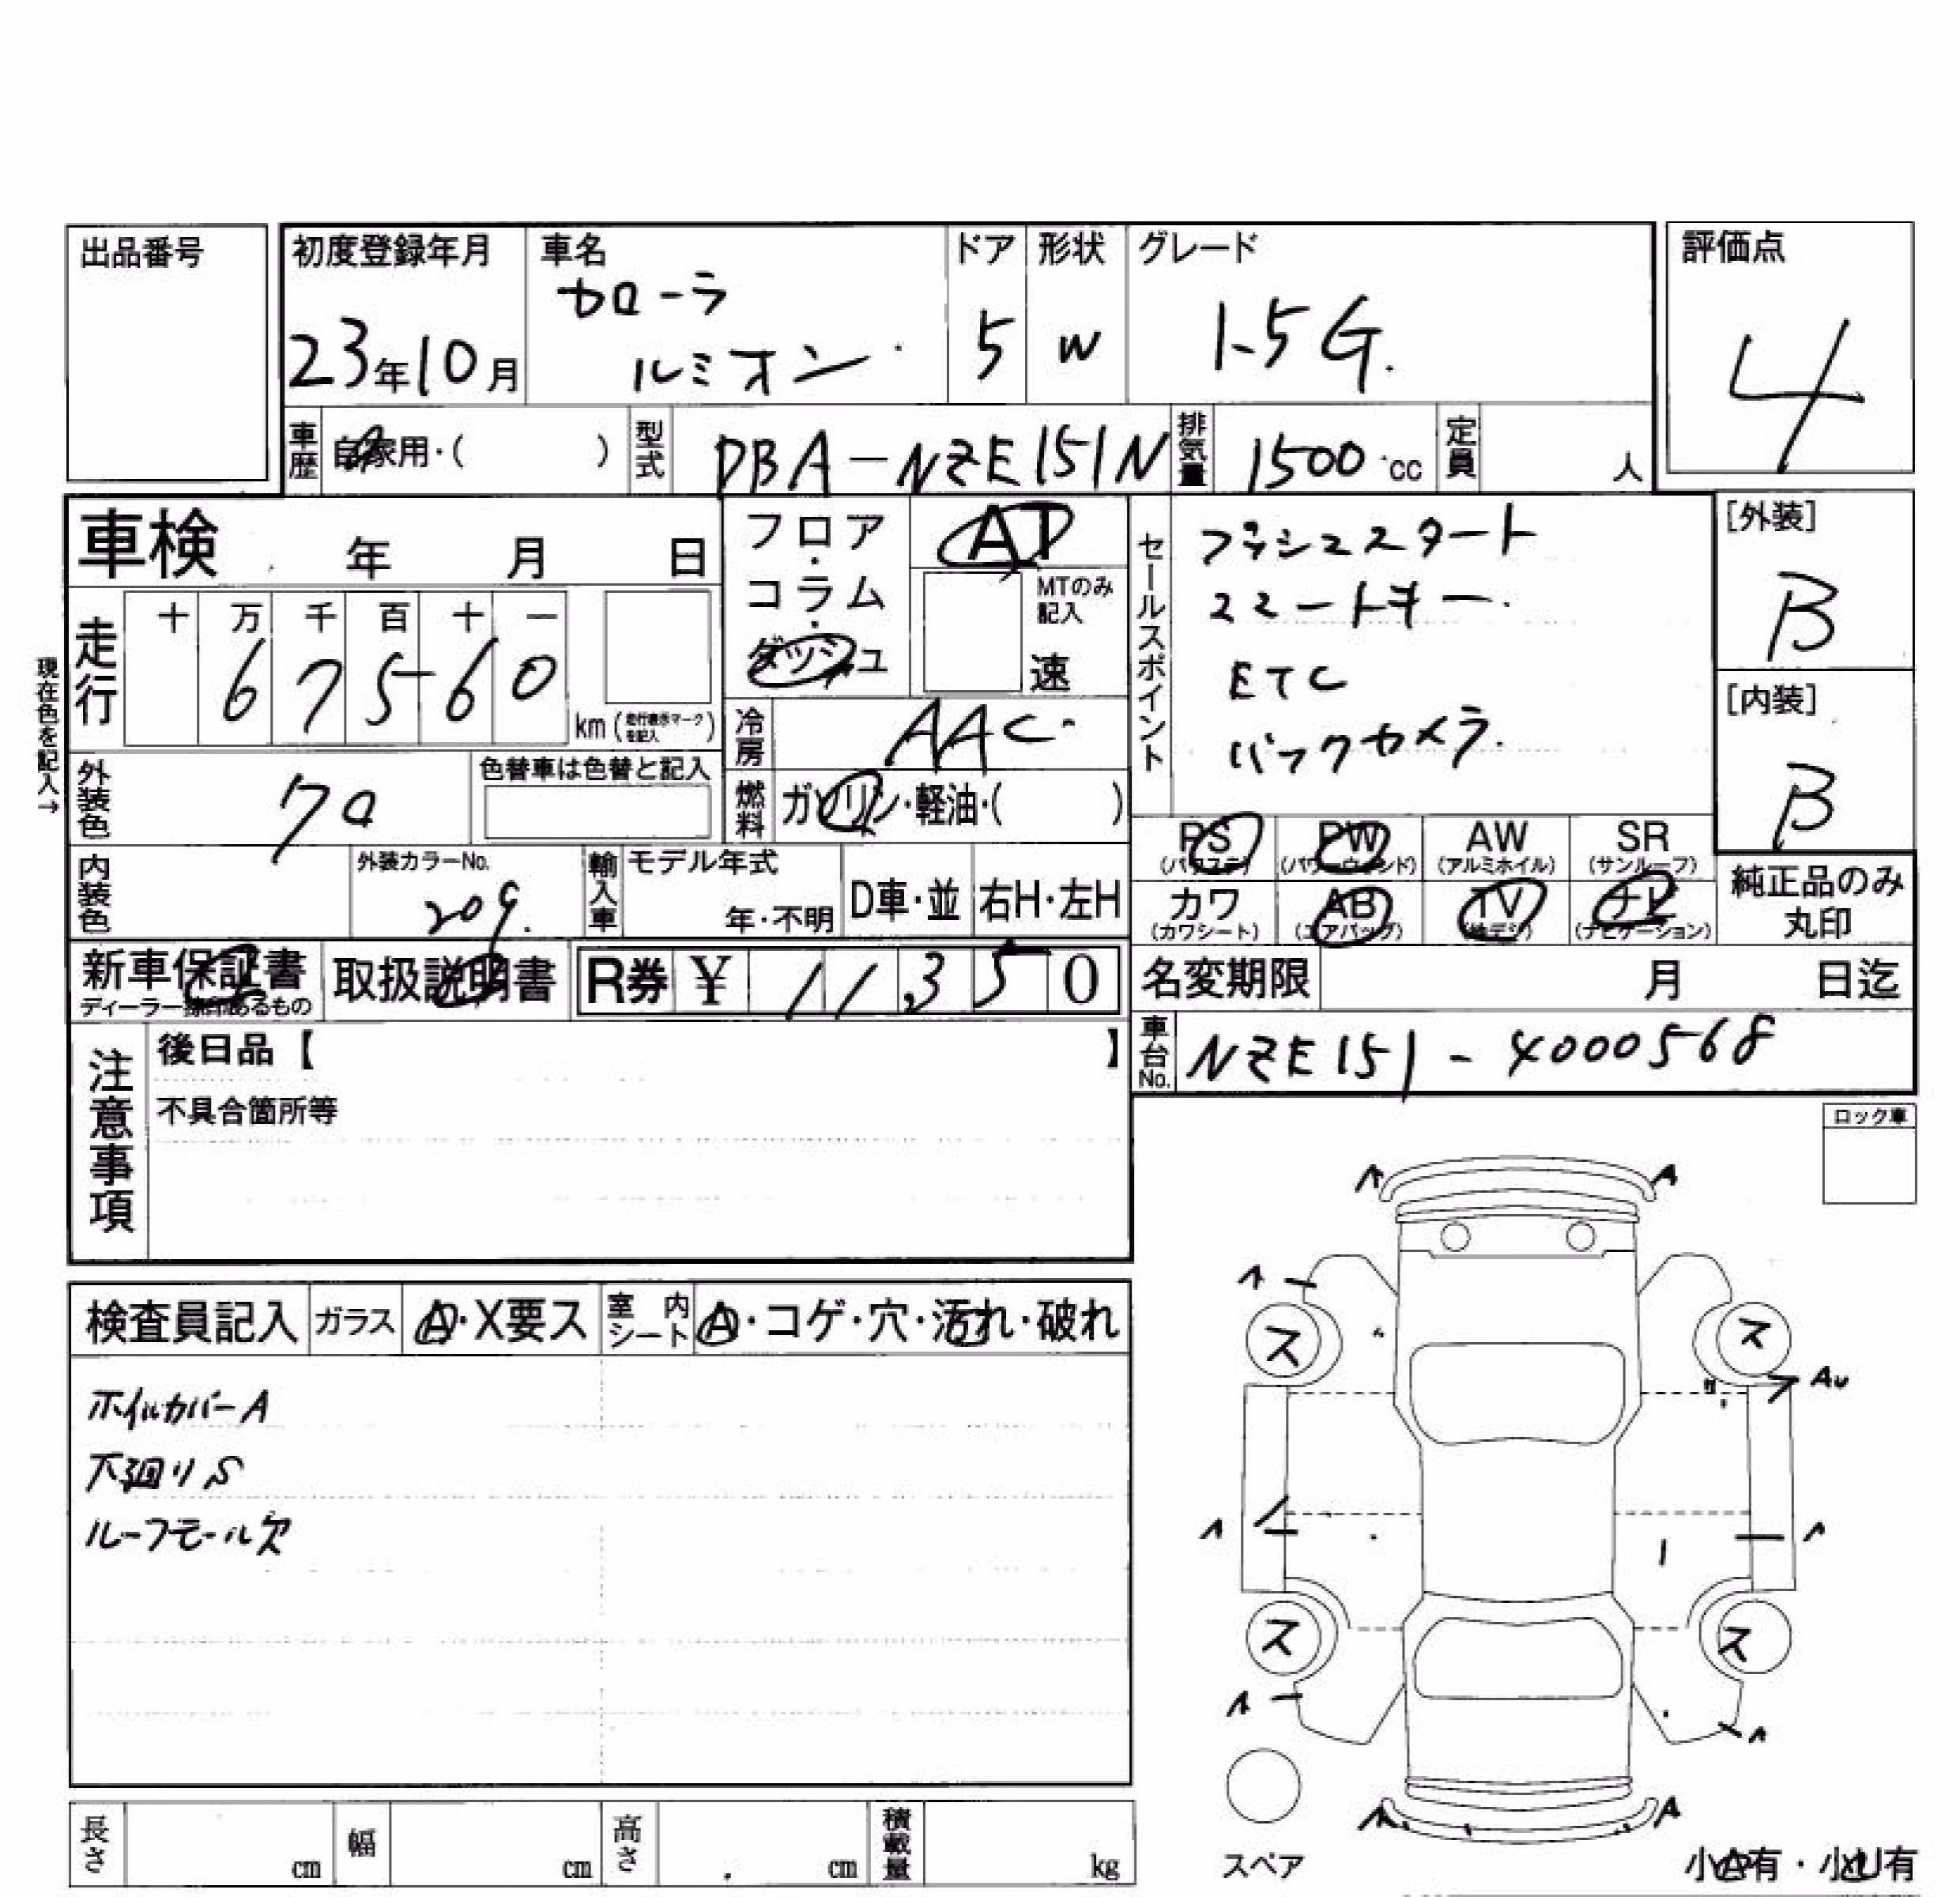 出品番号
初度登録年月
23年10月
車名
カローラ
ルミオン
ドア
5
形状
W
グレード
1.5G.
評価点
4
車歴
自家用・( )
型式
DBA-NZE151N
排気量
1500 cc
定員
人
車検 年 月 日
フロア
・
コラム
・
ダッシュ
AT
MTのみ
記入
速
セールスポイント
プッシュスタート
スマートキー.
ETC
バックカメラ.
[外装]
B
[内装]
B
現在色を記入→
走行
十 万 千 百 十 一
6 7 5 6 0
km (走行表示マークを記入)
冷房
AAC
燃料
ガソリン・軽油・( )
外装色
クロ
色替車は色替と記入
内装色
外装カラーNo.
209.
輸入車
モデル年式
年・不明
D車・並
右H・左H
PS
(パワステ)
PW
(パワーウィンド)
AW
(アルミホイル)
SR
(サンルーフ)
カワ
(カワシート)
AB
(エアバッグ)
TV
(地デジ)
ナビ
(ナビゲーション)
純正品のみ
丸印
新車保証書
ディーラー捺印あるもの
取扱説明書
R券 ¥ 11,350
名変期限 月 日迄
車台No.
NZE151-4000568
注意事項
後日品【 】
不具合箇所等
ロック車
検査員記入
ガラス
A・X要ス
室内シート
A・コゲ・穴・汚れ・破れ
ホイルカバーA
下廻りS
ルーフモール欠
A A
A
ス ス
AU
A A
ス ス
A A
A A
スペア
小A有・小U有
長さ cm
幅 cm
高さ cm
積載量 kg